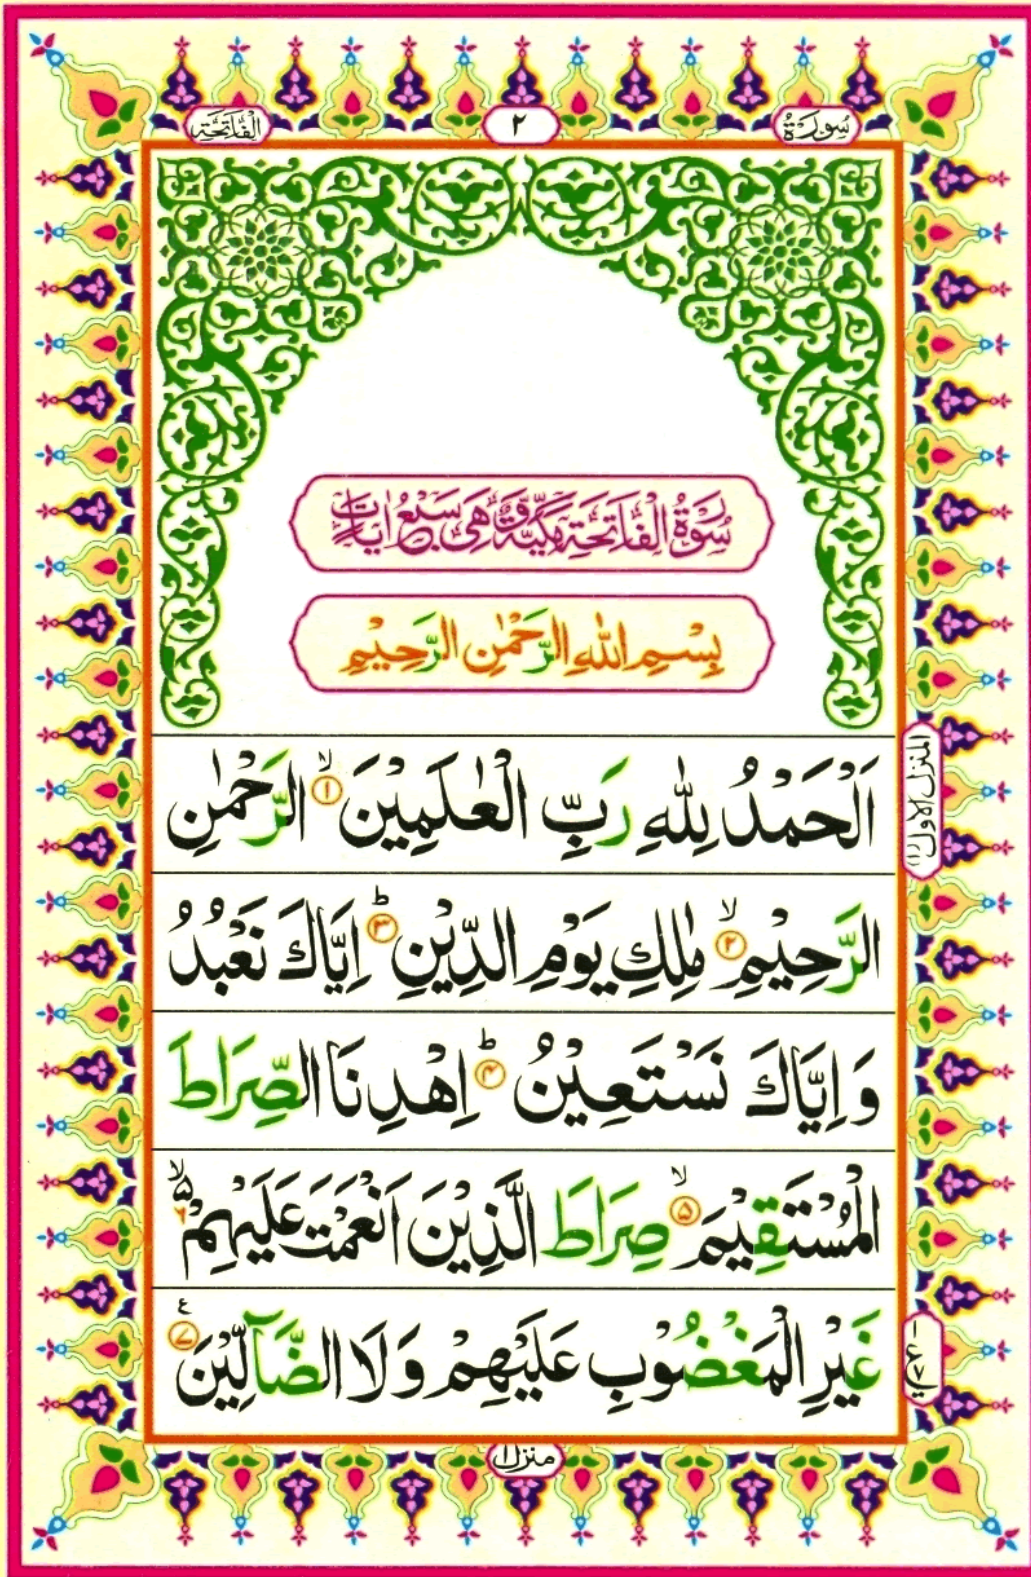 سُورَةُ
٢
الْفَاتِحَة
سُوْرَةُ الْفَاتِحَةِ مَكِّيَّةٌ وَّهِىَ سَبْعُ اٰيَاتٍ
بِسْمِ اللّٰهِ الرَّحْمٰنِ الرَّحِيْمِ
اَلْحَمْدُ لِلّٰهِ رَبِّ الْعٰلَمِيْنَ ۙ﴿۱﴾ الرَّحْمٰنِ
الرَّحِيْمِ ۙ﴿۲﴾ مٰلِكِ يَوْمِ الدِّيْنِ ؕ﴿۳﴾ اِيَّاكَ نَعْبُدُ
وَ اِيَّاكَ نَسْتَعِيْنُ ؕ﴿۴﴾ اِهْدِنَا الصِّرَاطَ
الْمُسْتَقِيْمَ ۙ﴿۵﴾ صِرَاطَ الَّذِيْنَ اَنْعَمْتَ عَلَيْهِمْ ۙ۵ ۶
غَيْرِ الْمَغْضُوْبِ عَلَيْهِمْ وَ لَا الضَّآلِّيْنَ ﴿۷﴾ ع
المنزل الاول (١)
ع
منزل ١